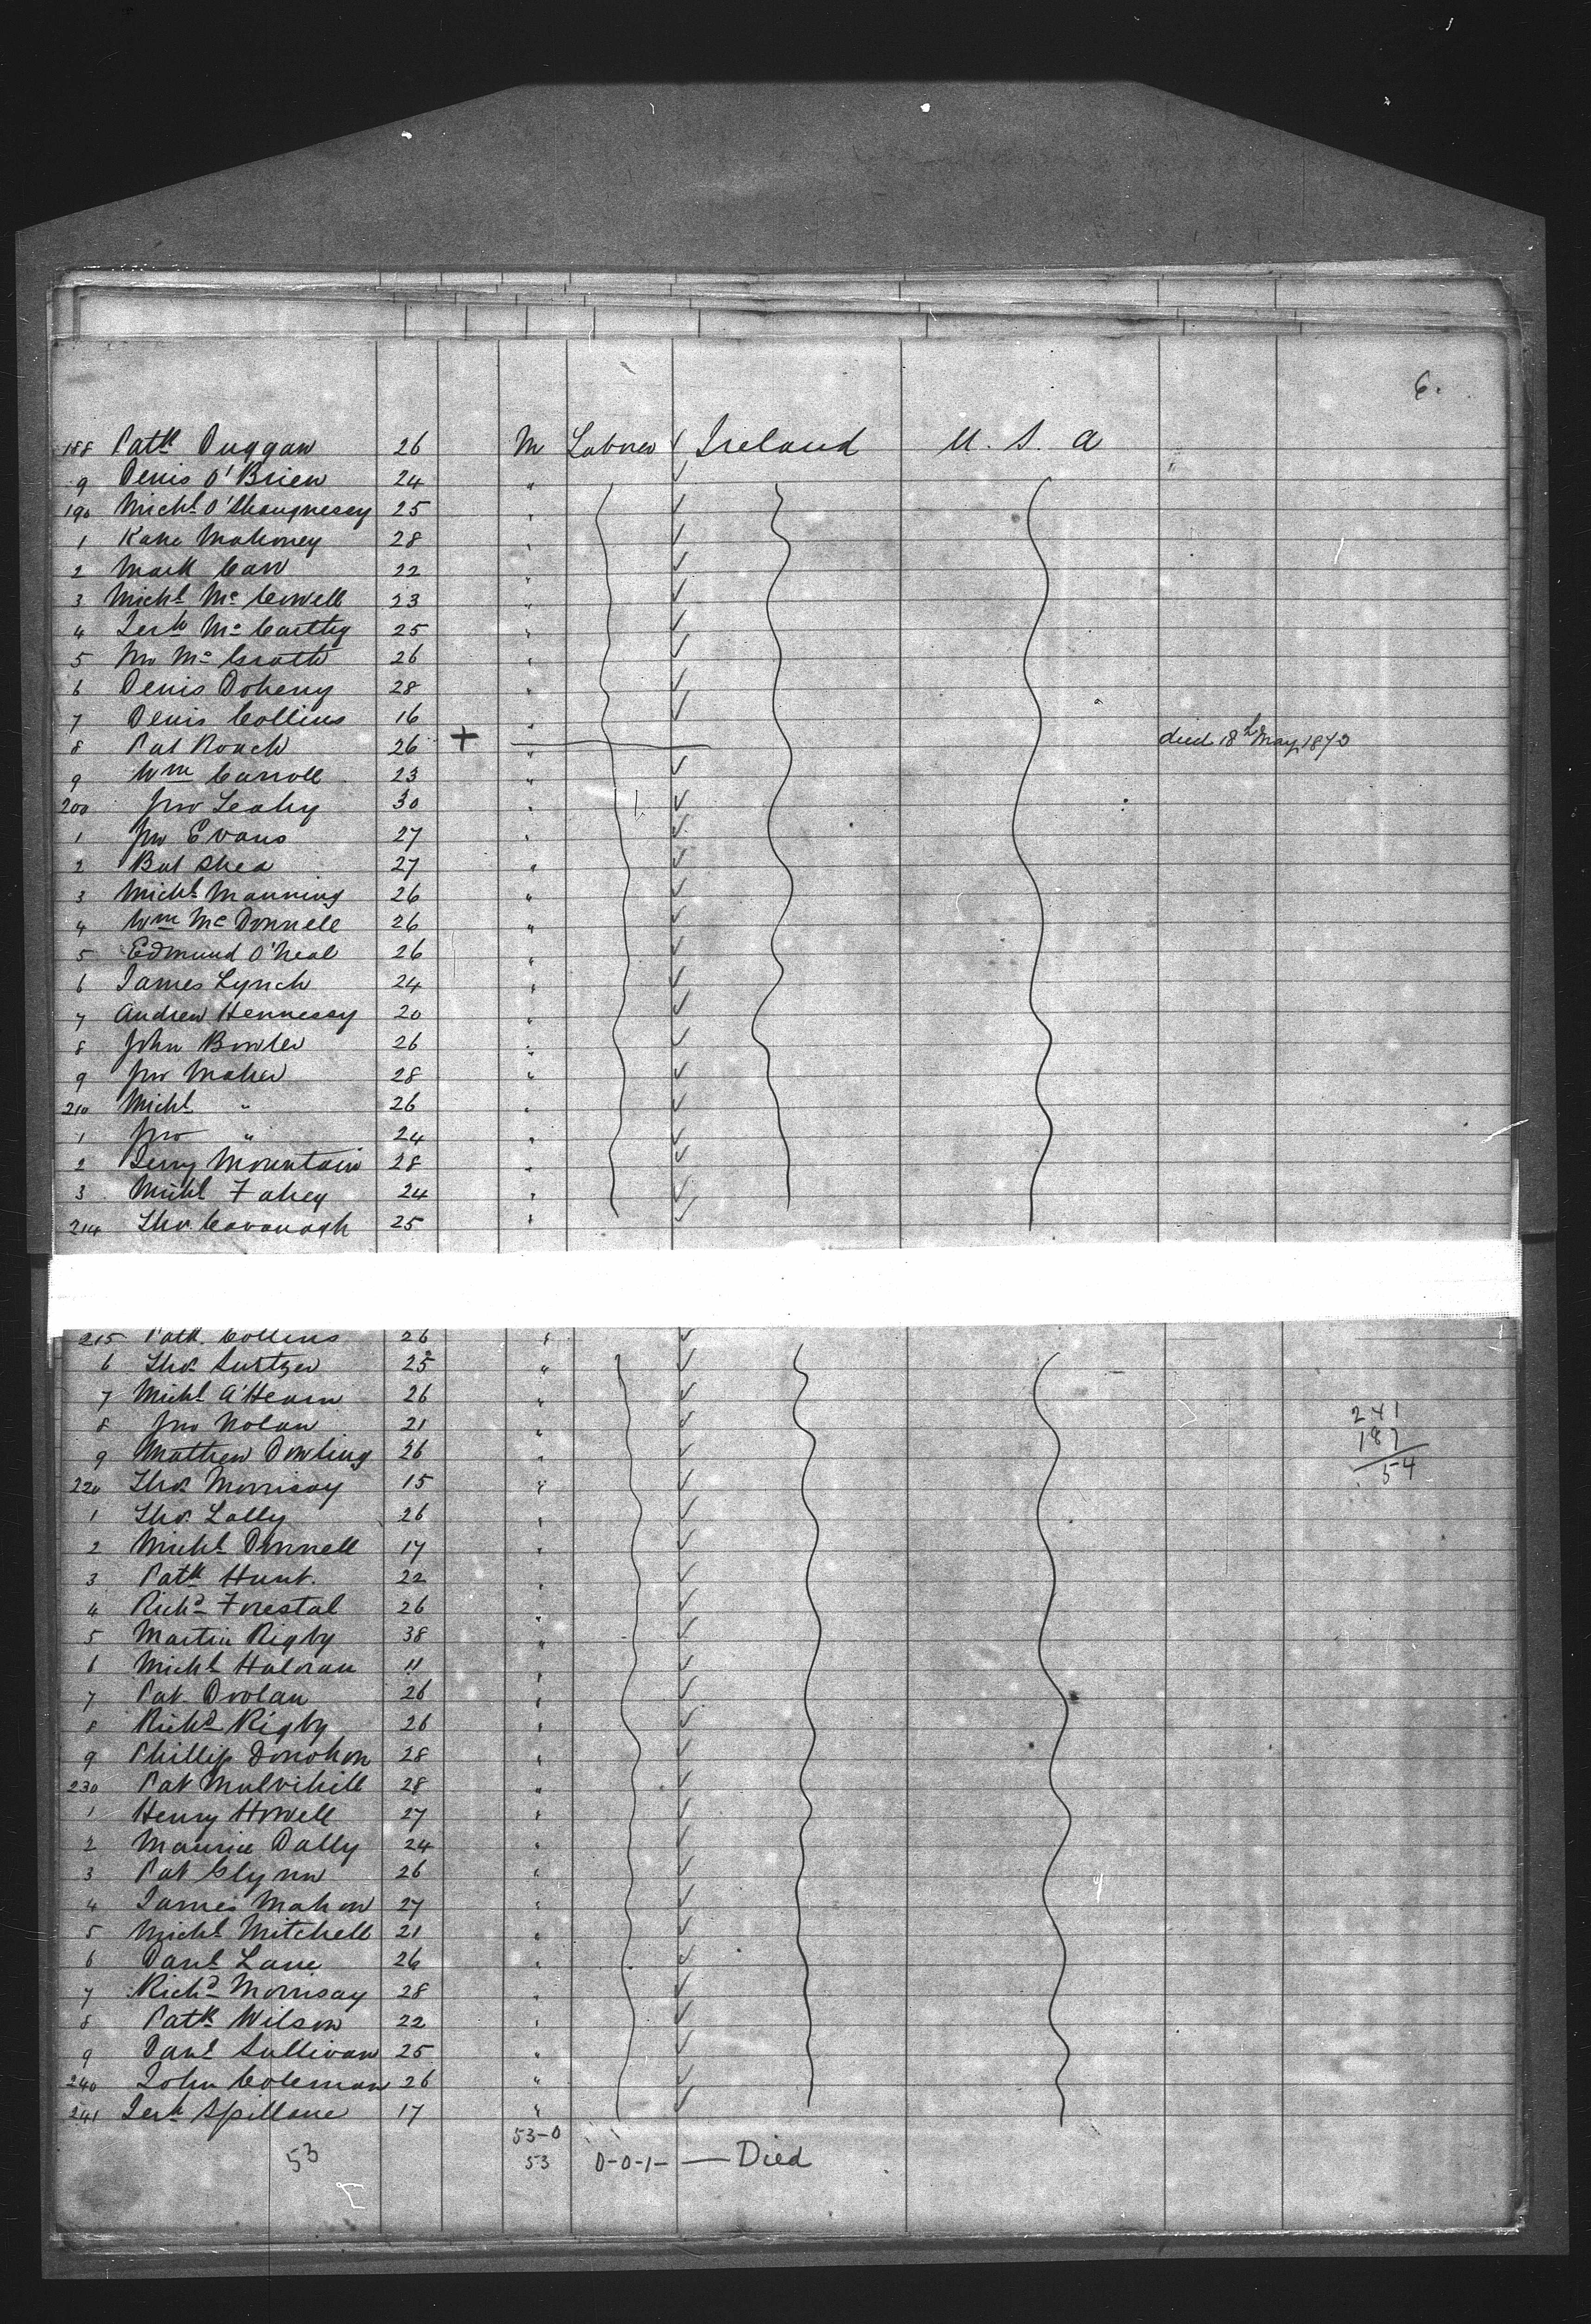 6.
188 Patk Duggan 26 M Laborer ✓ Ireland U. S. A
9 Denis O'Brien 24 " ✓
190 Michl O'Shaugnessy 25 " ✓
1 Kane Mahoney 28 " ✓
2 Mark Carr 22 " ✓
3 Michl Mc Conwell 23 " ✓
4 Jerh Mc Carthy 25 " ✓
5 Jno Mc Grath 26 " ✓
6 Denis Doheny 28 " ✓
7 Denis Collins 16 " ✓
8 Pat Roach 26 + " died 18th May 1873
9 Wm Carroll 23 " ✓
200 Jno Leahy 30 " ✓
1 Jno Evans 27 " ✓
2 Bat Shea 27 " ✓
3 Michl Manning 26 " ✓
4 Wm Mc Donnell 26 " ✓
5 Edmund O'Neal 26 " ✓
6 James Lynch 24 " ✓
7 Andrew Hennessy 20 " ✓
8 John Bowler 26 " ✓
9 Jno Maher 28 " ✓
210 Michl " 26 " ✓
1 Jno " 24 " ✓
2 Jerry Mountain 28 " ✓
3 Michl Fahey 24 " ✓
214 Thos Cavanagh 25 " ✓
215 Patk Collins 26 " ✓
6 Thos 25 " ✓
7 Michl A'Hearn 26 " ✓
8 Jno Nolan 21 " ✓ 241
9 Mathew Dowling 26 " ✓ 187
220 Thos Morrisay 15 " ✓ 54
1 Thos Lally 26 " ✓
2 Michl Donnell 17 " ✓
3 Patk Hunt. 22 " ✓
4 Richd Forestal 26 " ✓
5 Martin Rigby 38 " ✓
6 Michl Haloran 11 " ✓
7 Pat Dolan 26 " ✓
8 Richd Rigby 26 " ✓
9 Phillip Donohon 28 " ✓
230 Pat Mulvihill 28 " ✓
1 Henry Howell 27 " ✓
2 Maurice Dally 24 " ✓
3 Pat Glynn 26 " ✓
4 James Mahon 27 " ✓
5 Michl Mitchell 21 " ✓
6 Danl Lane 26 " ✓
7 Richd Morrisay 28 " ✓
8 Patk Wilson 22 " ✓
9 Danl Sullivan 25 " ✓
240 John Coleman 26 " ✓
241 Jerh Spillane 17 " ✓
53-0
53 53 0-0-1- — Died